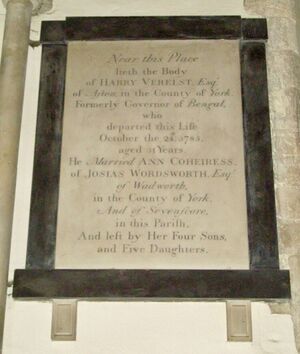 Near this Place
lieth the Body
of HARRY VERELST, Esqr.
of Aston, in the County of York
Formerly Governor of Bengal,
who
departed this Life
October the 24, 1785,
aged 51 Years.
He Married ANN COHEIRESS
of JOSIAS WORDSWORTH, Esqr.
of Wadworth,
in the County of York,
And of Sevenscore,
in this Parish,
And left by Her Four Sons,
and Five Daughters.